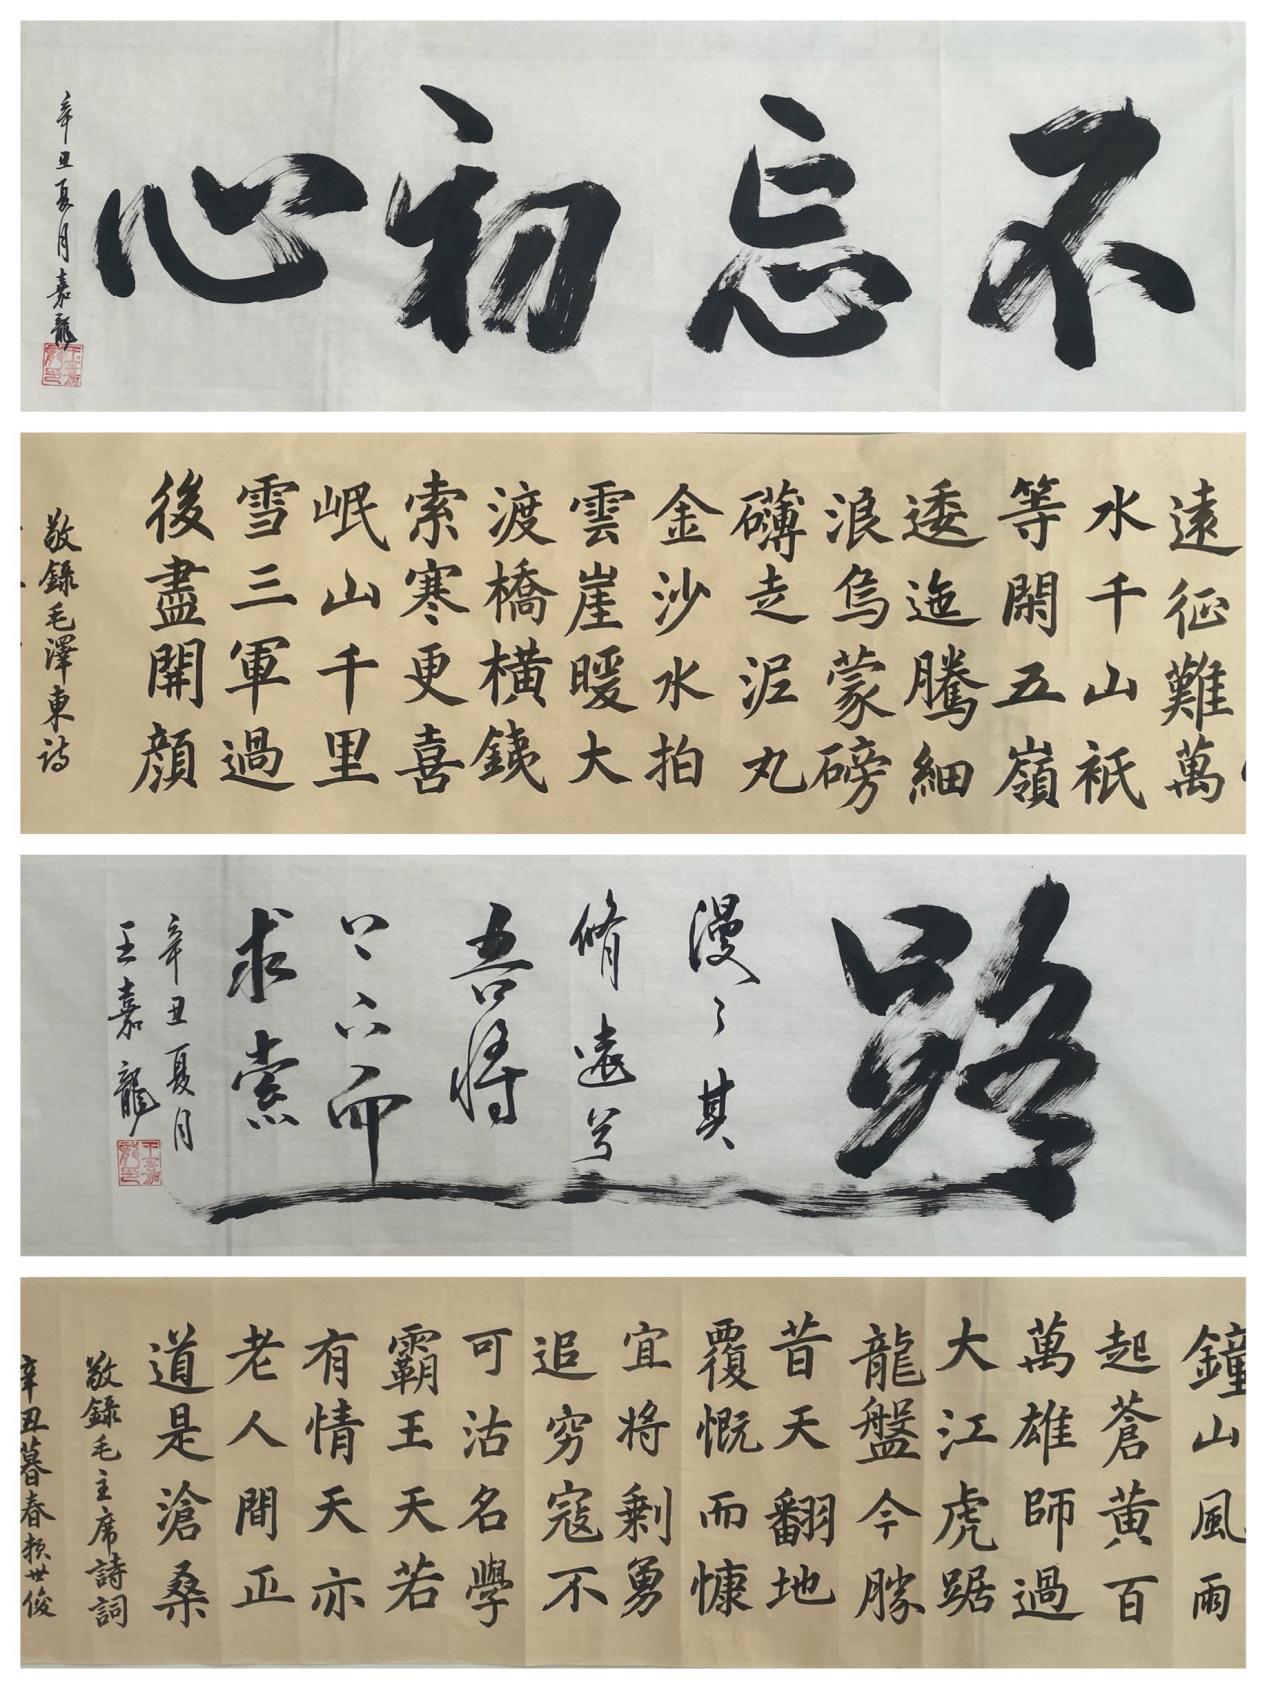 不忘初心
辛丑夏月嘉龍
遠征難萬
水千山祇
等閑五嶺
逶迤騰細
浪烏蒙磅
礴走泥丸
金沙水拍
雲崖暖大
渡橋橫鐵
索寒更喜
岷山千里
雪三軍過
後盡開顔
敬錄毛澤東詩
路
漫々其
脩遠兮
吾將
上下而
求索
辛丑夏月
王嘉龍
鐘山風雨
起蒼黃百
萬雄師過
大江虎踞
龍盤今勝
昔天翻地
覆慨而慷
宜將剩勇
追窮寇不
可沽名學
霸王天若
有情天亦
老人間正
道是滄桑
敬錄毛主席詩詞
辛丑暮春賴世俊